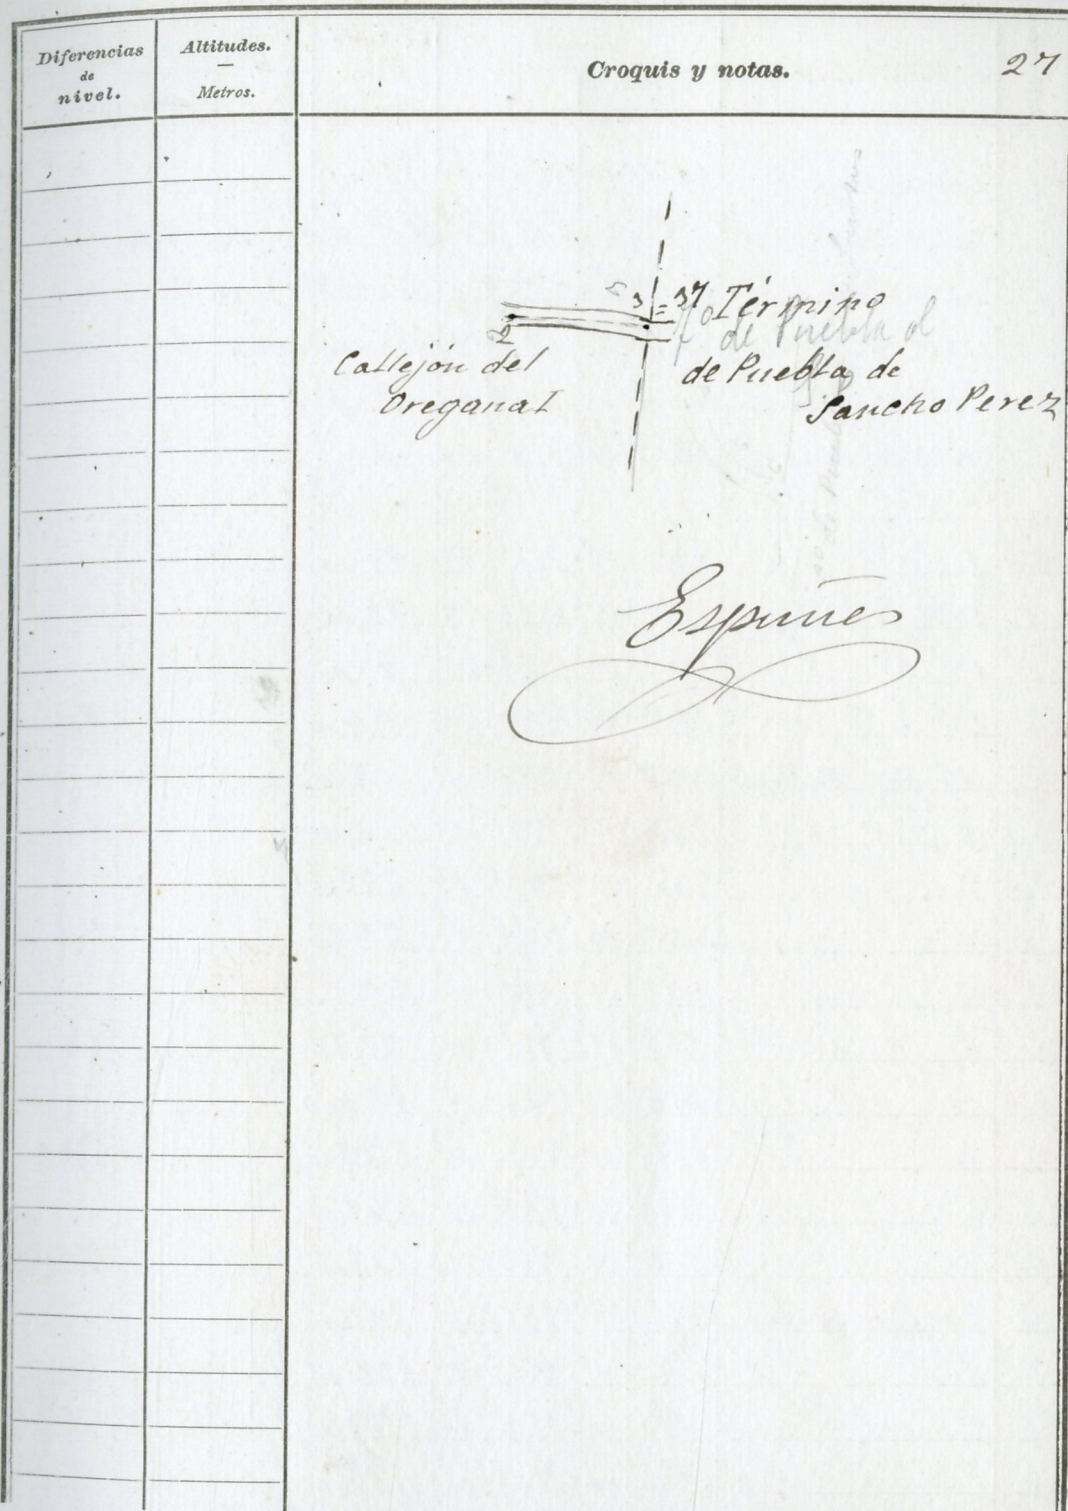 Diferencias
de
nivel.
Altitudes.
—
Metros.
Croquis y notas.
27
3 = 37 Término
2
Callejón del
Oreganal
de Puebla de
Sancho Perez
Espuñes